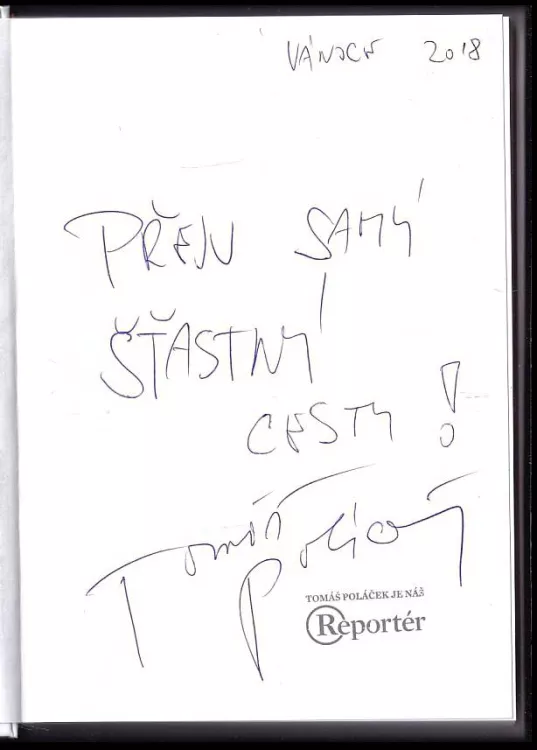 VÁNOCE 2018
PŘEJU SAMÝ
ŠŤASTNÝ
CESTY!
Tomáš
Poláček
TOMÁŠ POLÁČEK JE NÁŠ
Reportér